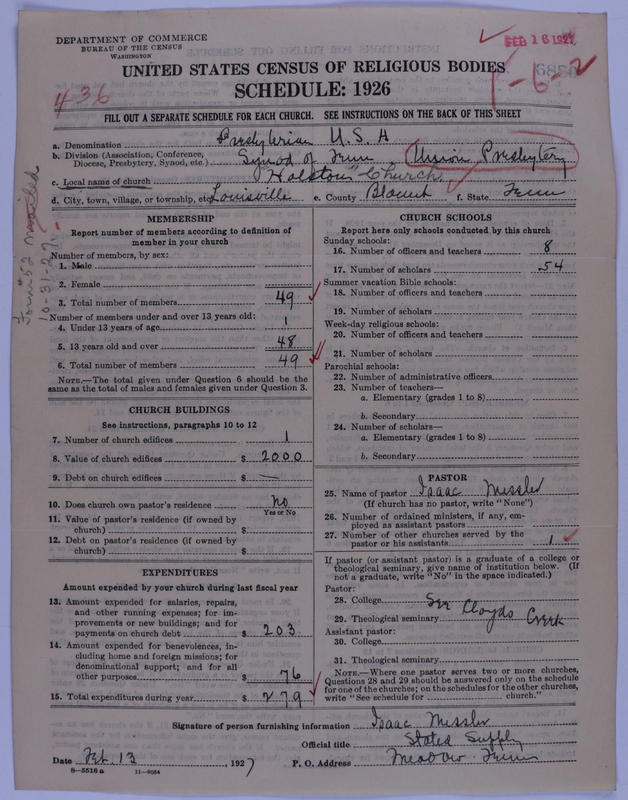 DEPARTMENT OF COMMERCE
BUREAU OF THE CENSUS
WASHINGTON
FEB 16 1927
UNITED STATES CENSUS OF RELIGIOUS BODIES
SCHEDULE: 1926
436
1-6-2
FILL OUT A SEPARATE SCHEDULE FOR EACH CHURCH. SEE INSTRUCTIONS ON THE BACK OF THIS SHEET
a. Denomination Presbyterian U.S.A
b. Division (Association, Conference, Diocese, Presbytery, Synod, etc.) Synod of Tenn Union Presbytery
c. Local name of church Holston Church
d. City, town, village, or township, etc. Louisville e. County Blount f. State Tenn
Form #52 mailed
10-31-27
MEMBERSHIP
Report number of members according to definition of
member in your church
Number of members, by sex:
1. Male
2. Female
3. Total number of members 49
Number of members under and over 13 years old:
4. Under 13 years of age 1
5. 13 years old and over 48
6. Total number of members 49
NOTE.—The total given under Question 6 should be
same as the total of males and females given under Question 3.
CHURCH BUILDINGS
See instructions, paragraphs 10 to 12
7. Number of church edifices 1
8. Value of church edifices $ 2000
9. Debt on church edifices $ —
10. Does church own pastor's residence No
Yes or No
11. Value of pastor's residence (if owned by
church) $
12. Debt on pastor's residence (if owned by
church) $
EXPENDITURES
Amount expended by your church during last fiscal year
13. Amount expended for salaries, repairs,
and other running expenses; for im-
provements or new buildings; and for
payments on church debt $ 203
14. Amount expended for benevolences, in-
cluding home and foreign missions; for
denominational support; and for all
other purposes $ 76
15. Total expenditures during year $ 279
CHURCH SCHOOLS
Report here only schools conducted by this church
Sunday schools:
16. Number of officers and teachers 8
17. Number of scholars 54
Summer vacation Bible schools:
18. Number of officers and teachers
19. Number of scholars
Week-day religious schools:
20. Number of officers and teachers
21. Number of scholars
Parochial schools:
22. Number of administrative officers
23. Number of teachers—
a. Elementary (grades 1 to 8)
b. Secondary
24. Number of scholars—
a. Elementary (grades 1 to 8)
b. Secondary
PASTOR
25. Name of pastor Isaac Messler
(If church has no pastor, write "None")
26. Number of ordained ministers, if any, em-
ployed as assistant pastors
27. Number of other churches served by the
pastor or his assistants 1
If pastor (or assistant pastor) is a graduate of a college or
theological seminary, give name of institution below. (If
not a graduate, write "No" in the space indicated.)
Pastor:
28. College See Cloyds Creek
29. Theological seminary
Assistant pastor:
30. College
31. Theological seminary
NOTE.—Where one pastor serves two or more churches,
Questions 28 and 29 should be answered only on the schedule
for one of the churches; on the schedules for the other churches,
write "See schedule for church."
Signature of person furnishing information Isaac Messler
Official title Stated Supply
Date Feb. 13, 1927 P. O. Address Meadow Tenn
8—5518a 11—9054